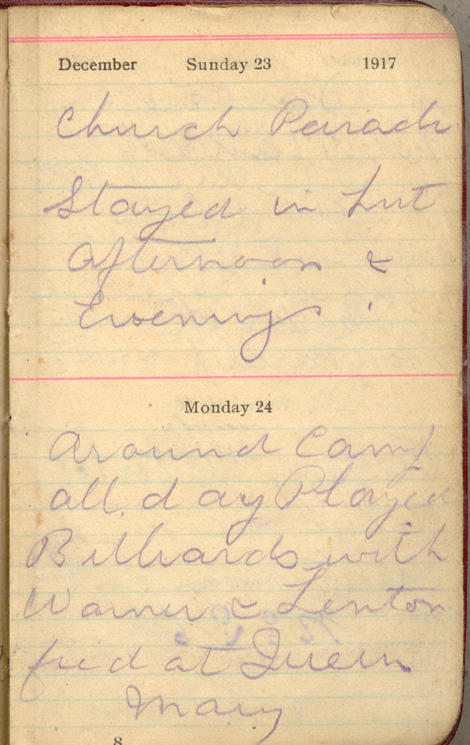 December Sunday 23 1917
Church Parade
Stayed in hut
afternoon &
Evenings.
Monday 24
around Camp
all day Played
Billiards with
Warner & Lenton
at Queen
Mary
8